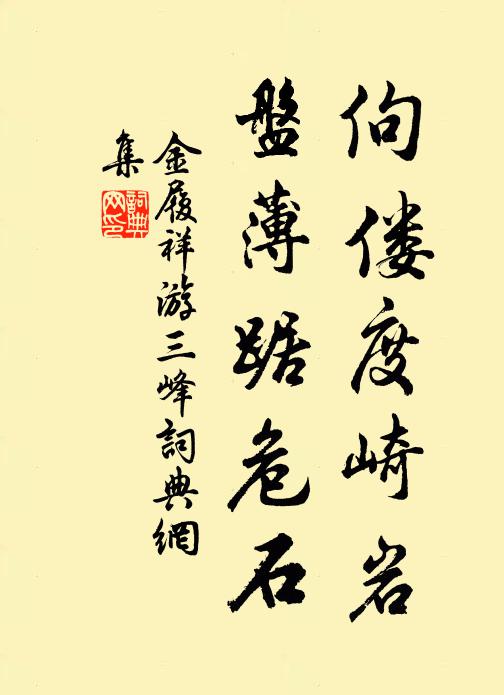 佝偻度崎岩
盤薄踞危石
金履祥游三峰詞典網
集
詞典
网印